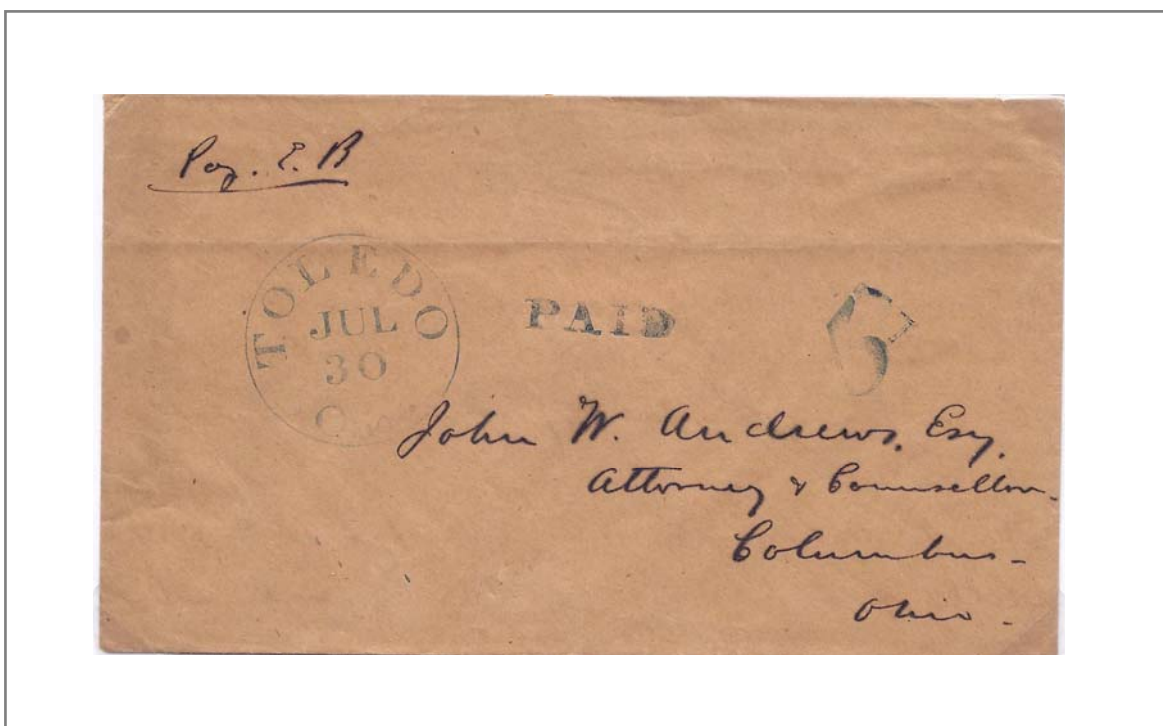 Pay. E. B
TOLEDO
JUL
30
O.
PAID
5
John W. Andrews, Esq.
Attorney & Counsellor.
Columbus -
Ohio -